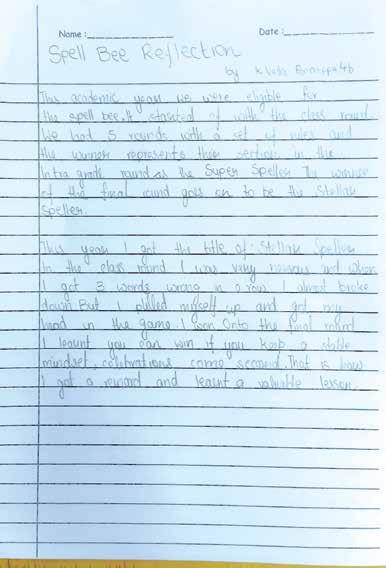 Name : Date :
Spell Bee Reflection
by
This academic year we were eligible for
the spell bee. It started of with the class round.
We had 5 rounds with a set of rules and
the winner represents their section in the
Intra grade round as the Super Speller. The winner
of the final round goes on to be the Stellar
Speller.
This year I got the title of: Stellar Speller
In the class round I was very nervous and when
I got 3 words wrong in a row I almost broke
down. But I pulled myself up and got my
head in the game. I won onto the final round
I learnt you can win if you keep a stable
mindset, celebrations come second. That is how
I got a reward and learnt a valuable lesson.